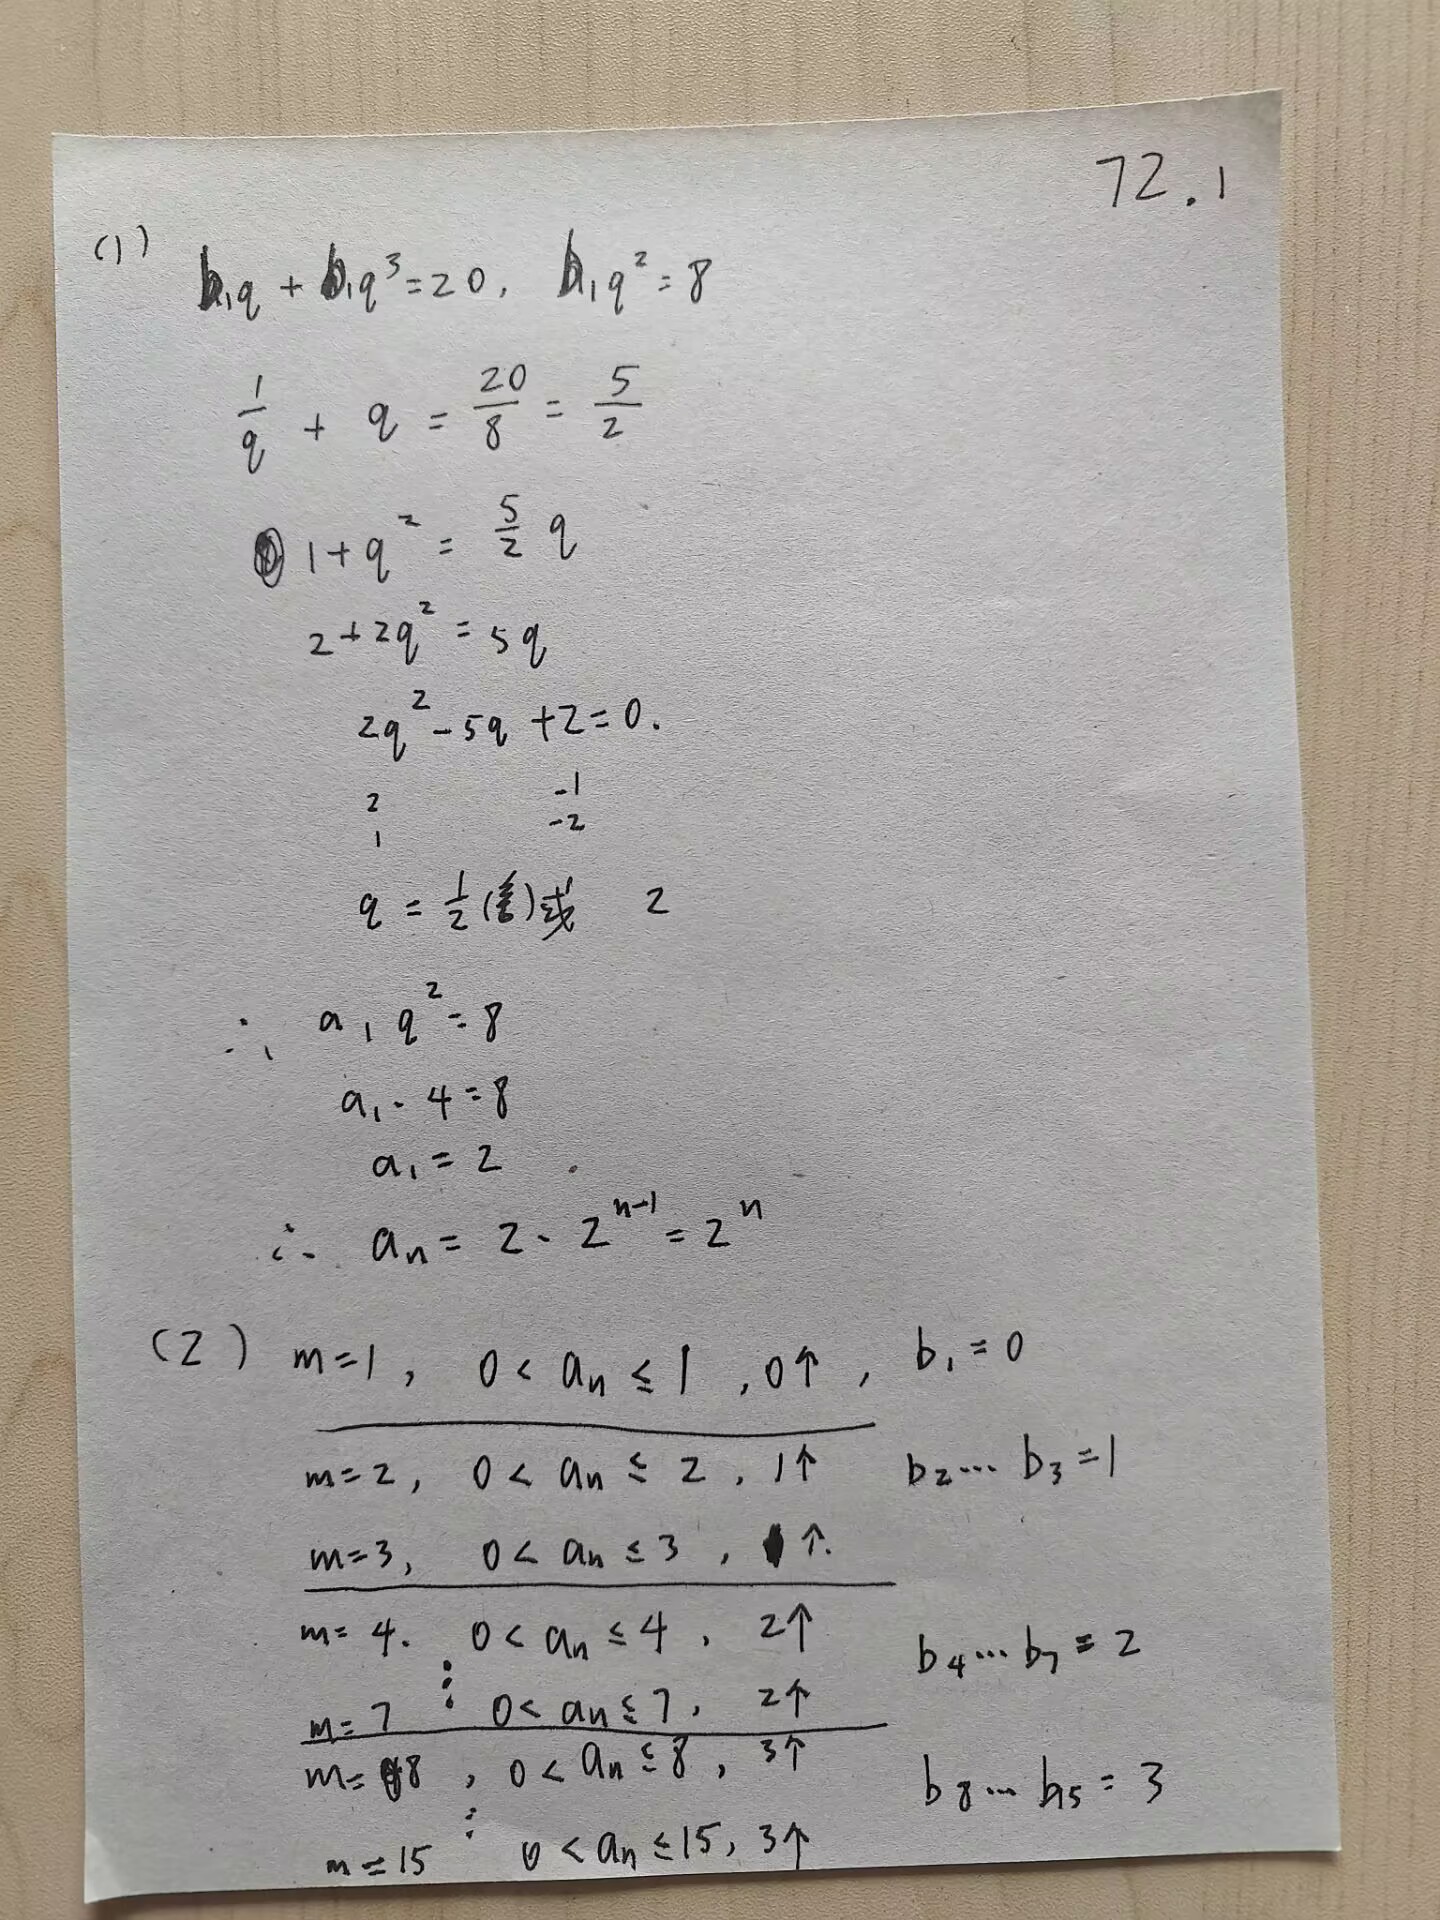 72.1
(1)
b₁q + b₁q³ = 20, b₁q² = 8
1/q + q = 20/8 = 5/2
1 + q² = 5/2 q
2 + 2q² = 5q
2q² - 5q + 2 = 0.
2 -1
1 -2
q = 1/2 (舍) 或 2
∴ a₁q² = 8
a₁ · 4 = 8
a₁ = 2
∴ aₙ = 2 · 2ⁿ⁻¹ = 2ⁿ
(2) m=1, 0 < aₙ ≤ 1, 0个, b₁ = 0
m=2, 0 < aₙ ≤ 2, 1个 b₂ ... b₃ = 1
m=3, 0 < aₙ ≤ 3, 个.
m=4. 0 < aₙ ≤ 4, 2个 b₄ ... b₇ = 2
⋮
m=7 0 < aₙ ≤ 7, 2个
m=8, 0 < aₙ ≤ 8, 3个 b₈ ... b₁₅ = 3
⋮
m=15 0 < aₙ ≤ 15, 3个